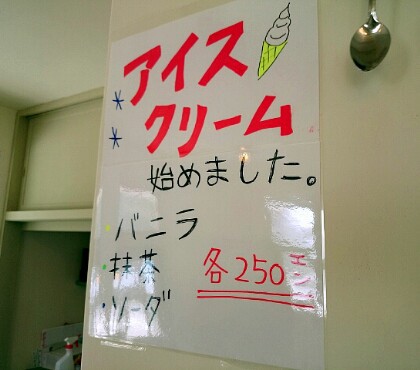 アイス
クリーム
始めました。
・バニラ
・抹茶
・ソーダ
各250エン